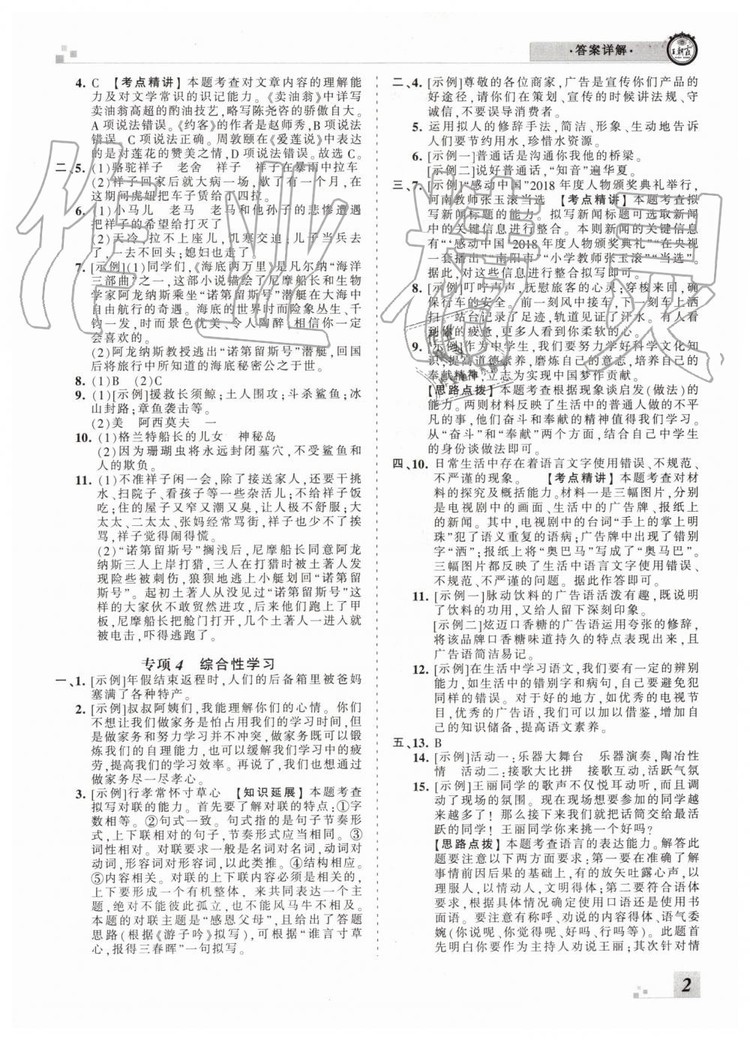 ·答案详解·
王朝霞
4. C 【考点精讲】本题考查对文章内容的理解能
力及对文学常识的识记能力。《卖油翁》中详写
卖油翁高超的酌油技艺,略写陈尧咨的骄傲自大。
A项说法错误。《约客》的作者是赵师秀,B项说
法错误。C项说法正确。周敦颐在《爱莲说》中表
达的是对莲花的赞美之情,D项说法错误。故选C。
二、5. (1)骆驼祥子 老舍 祥子 祥子在暴雨中拉车
(2)祥子回家后就大病一场,歇了有一个月,在
这期间虎妞把车子赁给丁四拉。
6. (1)小马儿 老马 老马和他孙子的悲惨遭遇
把祥子的希望给打灭了
(2)天冷,拉不上座儿,饥寒交迫;儿子当兵去
了,一去不回头;媳妇也走了
7. [示例](1)同学们,《海底两万里》是凡尔纳“海洋
三部曲”之一,这部小说描绘了尼摩船长和生物
学家阿龙纳斯乘“诺第留斯号”潜艇在大海中
自由航行的奇遇。书中情节惊险刺激,生动、千
钧一发,时而景色优美、令人陶醉!相信你一定
会喜欢的。
(2)阿龙纳斯教授逃出“诺第留斯号”潜艇,回国
后将旅行中所知道的海底秘密公之于世。
8. (1)B (2)C
9. (1)[示例]援救长须鲸;土人围攻;斗杀鲨鱼;冰
山封路;章鱼袭击等。
(2)美 阿西莫夫 一
10. (1)格兰特船长的儿女 神秘岛
(2)因为珊瑚虫将永远封闭墓穴,不受鲨鱼和人
的欺负。
11. (1)不准祥子闲一会,除了接送家人,还要干挑
水、扫院子、看孩子等一些杂活儿;不给祥子饭
吃;住的屋子又窄又潮又臭,让人极不舒服;大
太太、二太太、张妈经常骂街,祥子也少不了挨
骂,祥子觉得人格侮辱。
(2)“诺第留斯号”搁浅后,尼摩船长同意阿龙纳
斯三人上岸打猎。三人在打猎时被土著人发
现险些被刺伤,狼狈地逃上小艇划回“诺第留
斯号”。起初土著人从没见过“诺第留斯号”这
样的大家伙不敢贸然进攻,后来他们跑上了甲
板,尼摩船长把舱门打开,那些土著人进入就
被电击,吓得四处逃跑。
专项4 综合性学习
一、1. [示例]年假结束返程时,人们的后备箱里被爸妈
塞满了各种特产。
2. [示例]叔叔阿姨们,我能理解你们的心情。你们
不想让我们做家务是怕占用我们的学习时间,但
是做家务和努力学习并不冲突,做家务既可以锻
炼我们的自理能力,也可以缓解我们学习中的疲
劳,提高我们的学习效率。再说了,我们也想通过
做家务尽一尽孝心。
3. [示例]行孝常怀寸草心 【知识延展】本题考查
拟写对联的能力。首先要了解对联的特点:①字
数相等。②句式一致。句式指的是句子节奏形
式,上下联相对的句子,节奏形式应当相同。③
词性相对。对联要求一般是名词对名词,动词对
动词,形容词对形容词,以此类推。④结构相应。
⑤内容相关。对联的上下联内容应是相关的,
上下要形成一个有机整体,来共同表达一个主
题,绝对不能彼此孤立,也不能风马牛不相及。
本题的对联主题是“感恩父母”,且给出了答题
思路(根据《游子吟》拟写),可根据“谁言寸草
心,报得三春晖”一句拟写。
二、4. [示例]尊敬的各位商家,广告是宣传你们产品的
好途径,请你们在策划、宣传的时候讲法规、守
诚信,不要误导消费者。
5. 运用拟人的修辞手法,简洁、形象、生动地告诉
人们要节约用水,珍惜水资源。
6. [示例一]普通话是沟通你我他的桥梁。
[示例二]说好普通话,“知音”遍华夏。
三、7. [示例]“感动中国”2018年度人物颁奖典礼举行,
河南教师张玉滚当选 【考点精讲】本题考查拟
写新闻标题的能力。拟写新闻标题可选取新闻
中的关键信息进行整合。本则新闻的关键信息
有“‘感动中国’2018年度人物颁奖典礼”“在央视
一套播出”“南阳市”“小学教师张玉滚”“当选”。
据此,对这些信息进行整合拟写即可。
8. [示例]叮咛声声,抚慰旅客的心灵;穿梭来回,确
保行车的安全。前一刻风中接车,下一刻月下送
扫。站台记录了足迹,轨道见证了汗水。有人看
到你的疲惫,更多人看到你柔软的心。
9. [示例]作为中学生,我们要努力学好科学文化知
识,提高道德素养,磨炼自己的意志,培养自己的
奉献精神,立志为实现中国梦作贡献。
【思路点拨】本题考查根据现象谈启发(做法)的
能力。两则材料反映了生活中的普通人做的不平
凡的事,他们奋斗和奉献的精神值得我们学习。
从“奋斗”和“奉献”两个方向,结合自己中学生
的身份谈做法即可。
四、10. 日常生活中存在着语言文字使用错误、不规范、
不严谨的现象。 【考点精讲】本题考查对材
料的探究及概括能力。材料一是三幅图片,分别
是电视剧中的画面、生活中的广告牌、报纸上
的新闻。其中,电视剧中的台词“手上的掌上明
珠”犯了语义重复的语病;广告牌中出现了错
别字“洒”;报纸上将“奥巴马”写成了“奥马巴”。
三幅图片都反映了生活中语言文字使用错误、
不规范、不严谨的问题。据此作答即可。
11. [示例一]脉动饮料的广告语活泼有趣,既说明
了饮料的功用,又给人留下深刻印象。
[示例二]炫迈口香糖的广告语运用夸张的修辞,
将该品牌口香糖味道持久的特点表现出来,且
广告语简洁易记。
12. [示例]在生活中学习语文,我们要有一定的辨别
能力,如生活中的错别字和病句,自己要避免犯
同样的错误。对于好的地方,如优秀的电视节
目,优秀的广告语,我们可以加以借鉴,增加自
己的知识储备,提高语文素养。
五、13. B
14. [示例]活动一:乐器大舞台 乐器演奏,陶冶性
情 活动二:接歌大比拼 接歌互动,活跃气氛
15. [示例]王丽同学的歌声不仅悦耳动听,而且调动
了现场的氛围。现在现场想要参加的同学越来
越多了!那么接下来我们就把话筒交给最活
跃的同学!王丽同学你来挑一个好吗?
【思路点拨】本题考查语言的表达能力。解答此
题要注意以下两方面要求:第一,准确的了解事
情前因后果的基础上,有的放矢吐露心声,以
理服人,以情动人,文明得体;第二要符合语体
要求,根据具体情况确定使用口语还是使用书
面语。要注意有称呼、劝说的内容、语气委
婉(你说呢、你觉得呢、好吗、行吗等)。此题首
先明白你要作为主持人劝说王丽;其次针对情
2